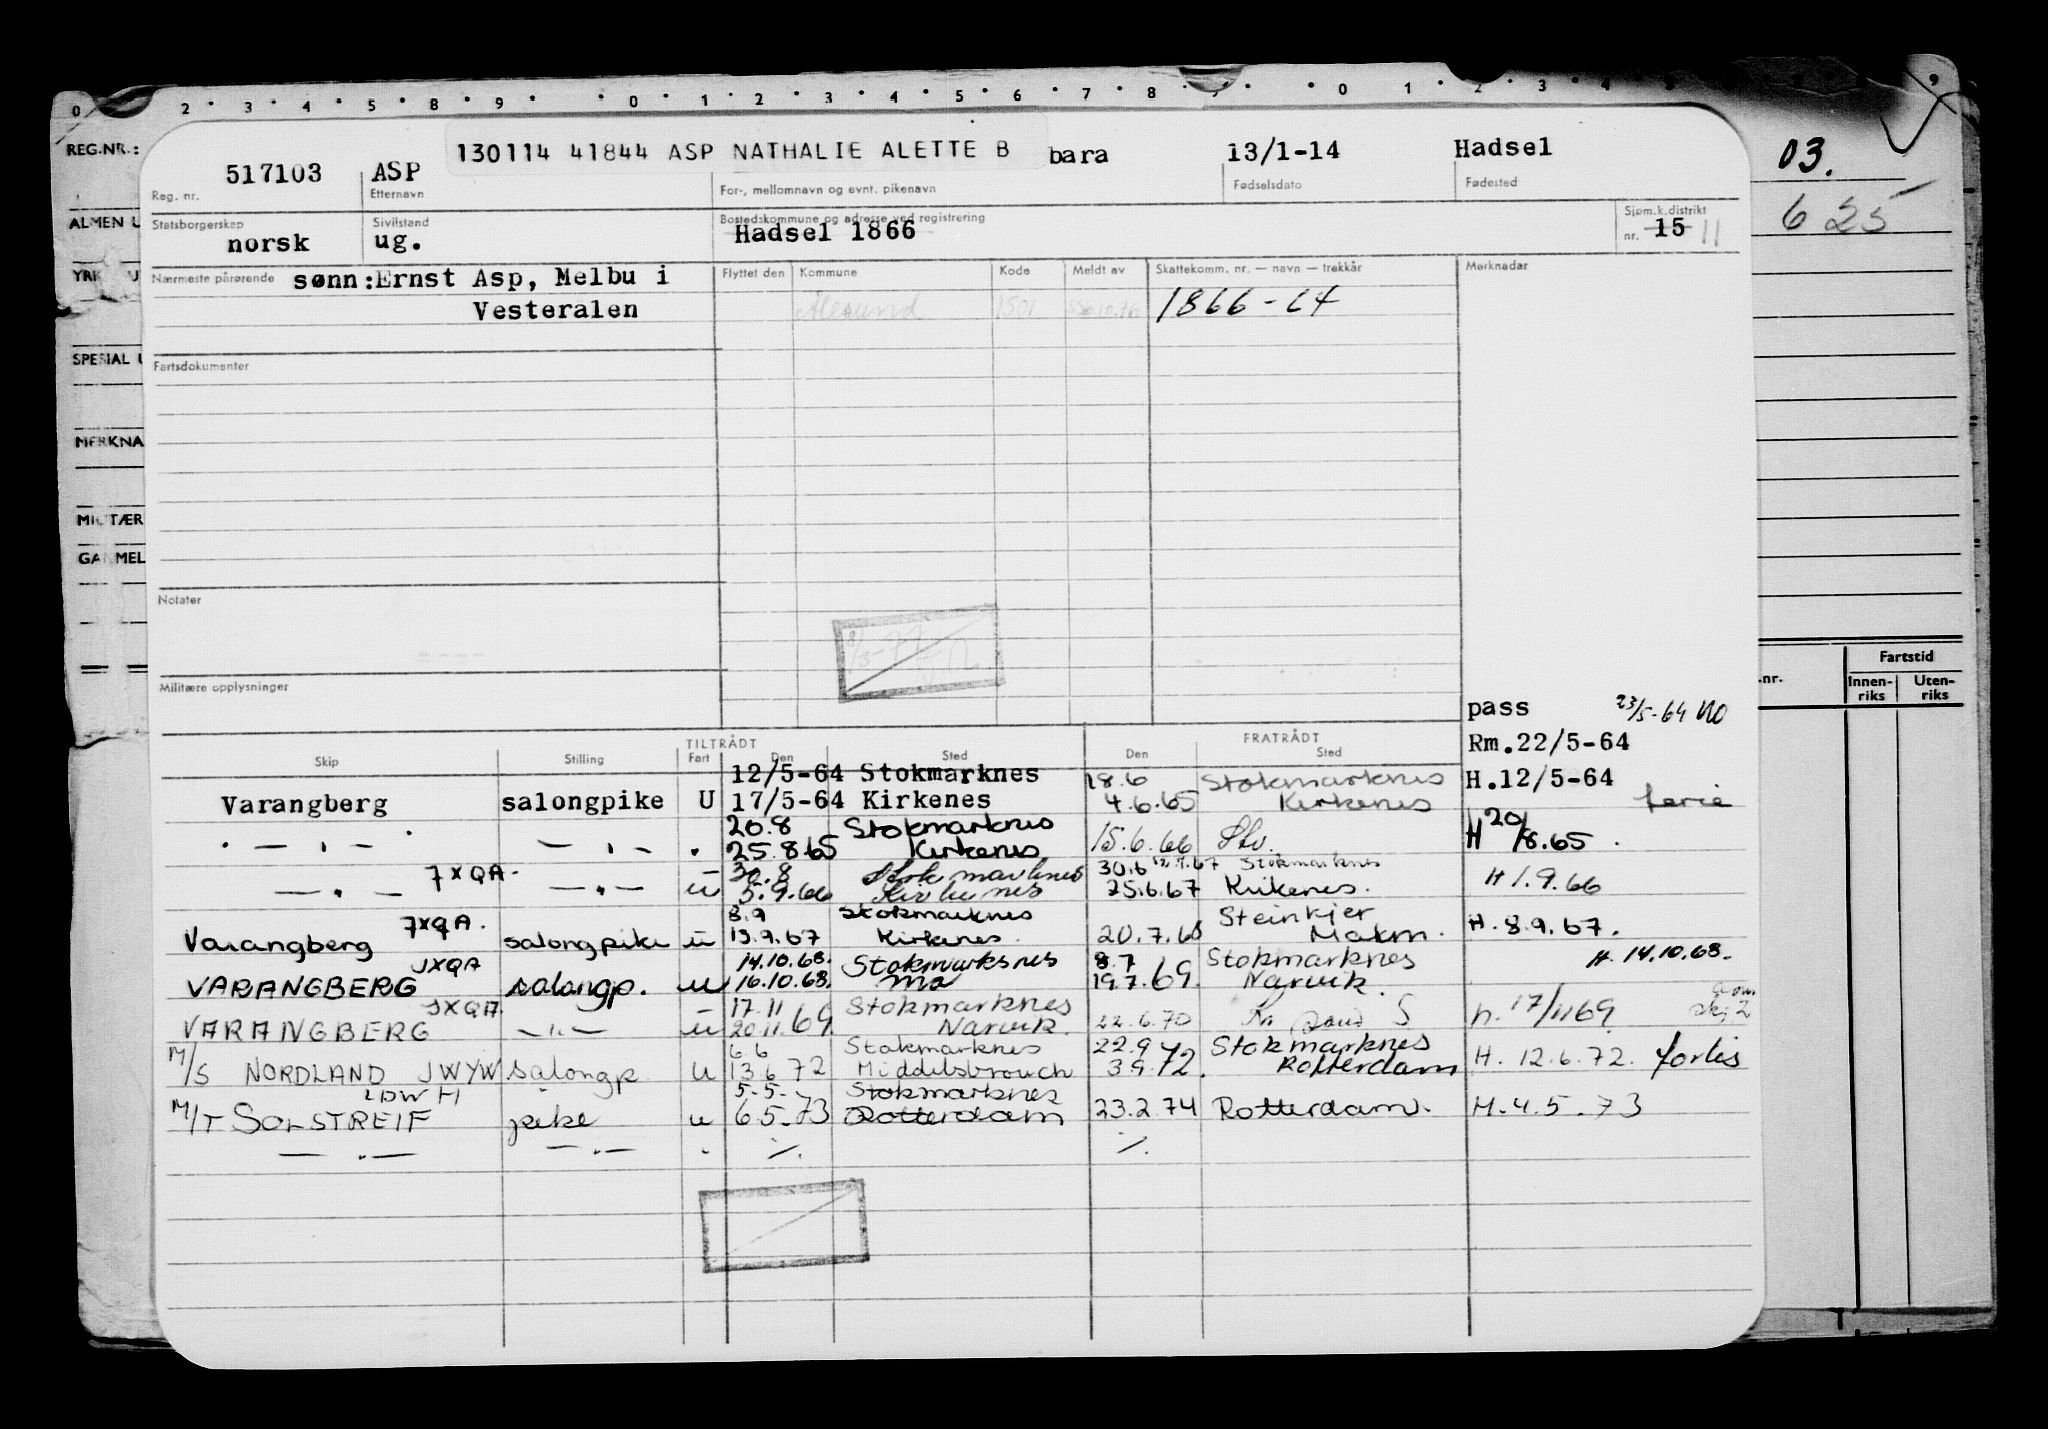 0 2 3 4 5 8 9 0 1 2 3 4 5 6 7 8 9 0 1 2 3 4 5 9
REG.NR.:
517103 ASP 130114 41844 ASP NATHALIE ALETTE B bara 13/1-14 Hadsel 03.
Reg. nr. Etternavn For-, mellomnavn og evnt. pikenavn Fødselsdato Fødested
ALMEN U Statsborgerskap Sivilstand Bostedskommune og adresse ved registrering Sjøm.k.distrikt 625
norsk ug. Hadsel 1866 nr. 15 11
YRK U Nærmeste pårørende sønn:Ernst Asp, Melbu i Flyttet den Kommune Kode Meldt av Skattekomm. nr. — navn — trekkår Merknader
Vesterålen Ålesund 1501 1866-64
SPESIAL U Fartsdokumenter
MERKNA
MILITÆR
GAMMEL
Notater
8/3-77
Militære opplysninger
Fartstid
.nr. Innen-riks Uten-riks
pass 23/5-64 NO
TILTRÅDT FRATRÅDT Rm.22/5-64
Skip Stilling Fart Den Sted Den Sted
12/5-64 Stokmarknes 18.6 Stokmarknes H.12/5-64
Varangberg salongpike U 17/5-64 Kirkenes 4.6.65 Kirkenes ferie
20.8 Stokmarknes H 20/8.65
" — " — — " — " 25.8.65 Kirkenes 15.6.66
7XQA 30.8 Stokmarknes 30.6 12.7.67 Stokmarknes
— " — — " — u 5.9.66 Kirkenes 25.6.67 Kirkenes. H 1.9.66
7XQA. 8.9 Stokmarknes Steinkjer
Varangberg salongpike u 13.9.67 Kirkenes. 20.7.68 Makm. H. 8.9.67.
JXQA 14.10.68. Stokmarksnes 8.7 Stokmarknes H. 14.10.68.
VARANGBERG salongp. u 16.10.68. Mo 19.7.69. Narvik.
JXQA. 17.11 Stokmarknes
VARANGBERG — " — u 20.11.69 Narvik. 22.6.70 Kr sand S h. 17/11 69
6.6 Stokmarknes 22.9 Stokmarknes
M/S NORDLAND JWYW salongp u 13.6.72 Middelsbrouch 3.9.72. Rotterdam H. 12.6.72. forlis
LDWH 5.5. Stokmarknes
M/T SOLSTREIF pike u 6.5.73 Rotterdam 23.2.74 Rotterdam. H. 4.5.73
— " — — " — " ./. ./.